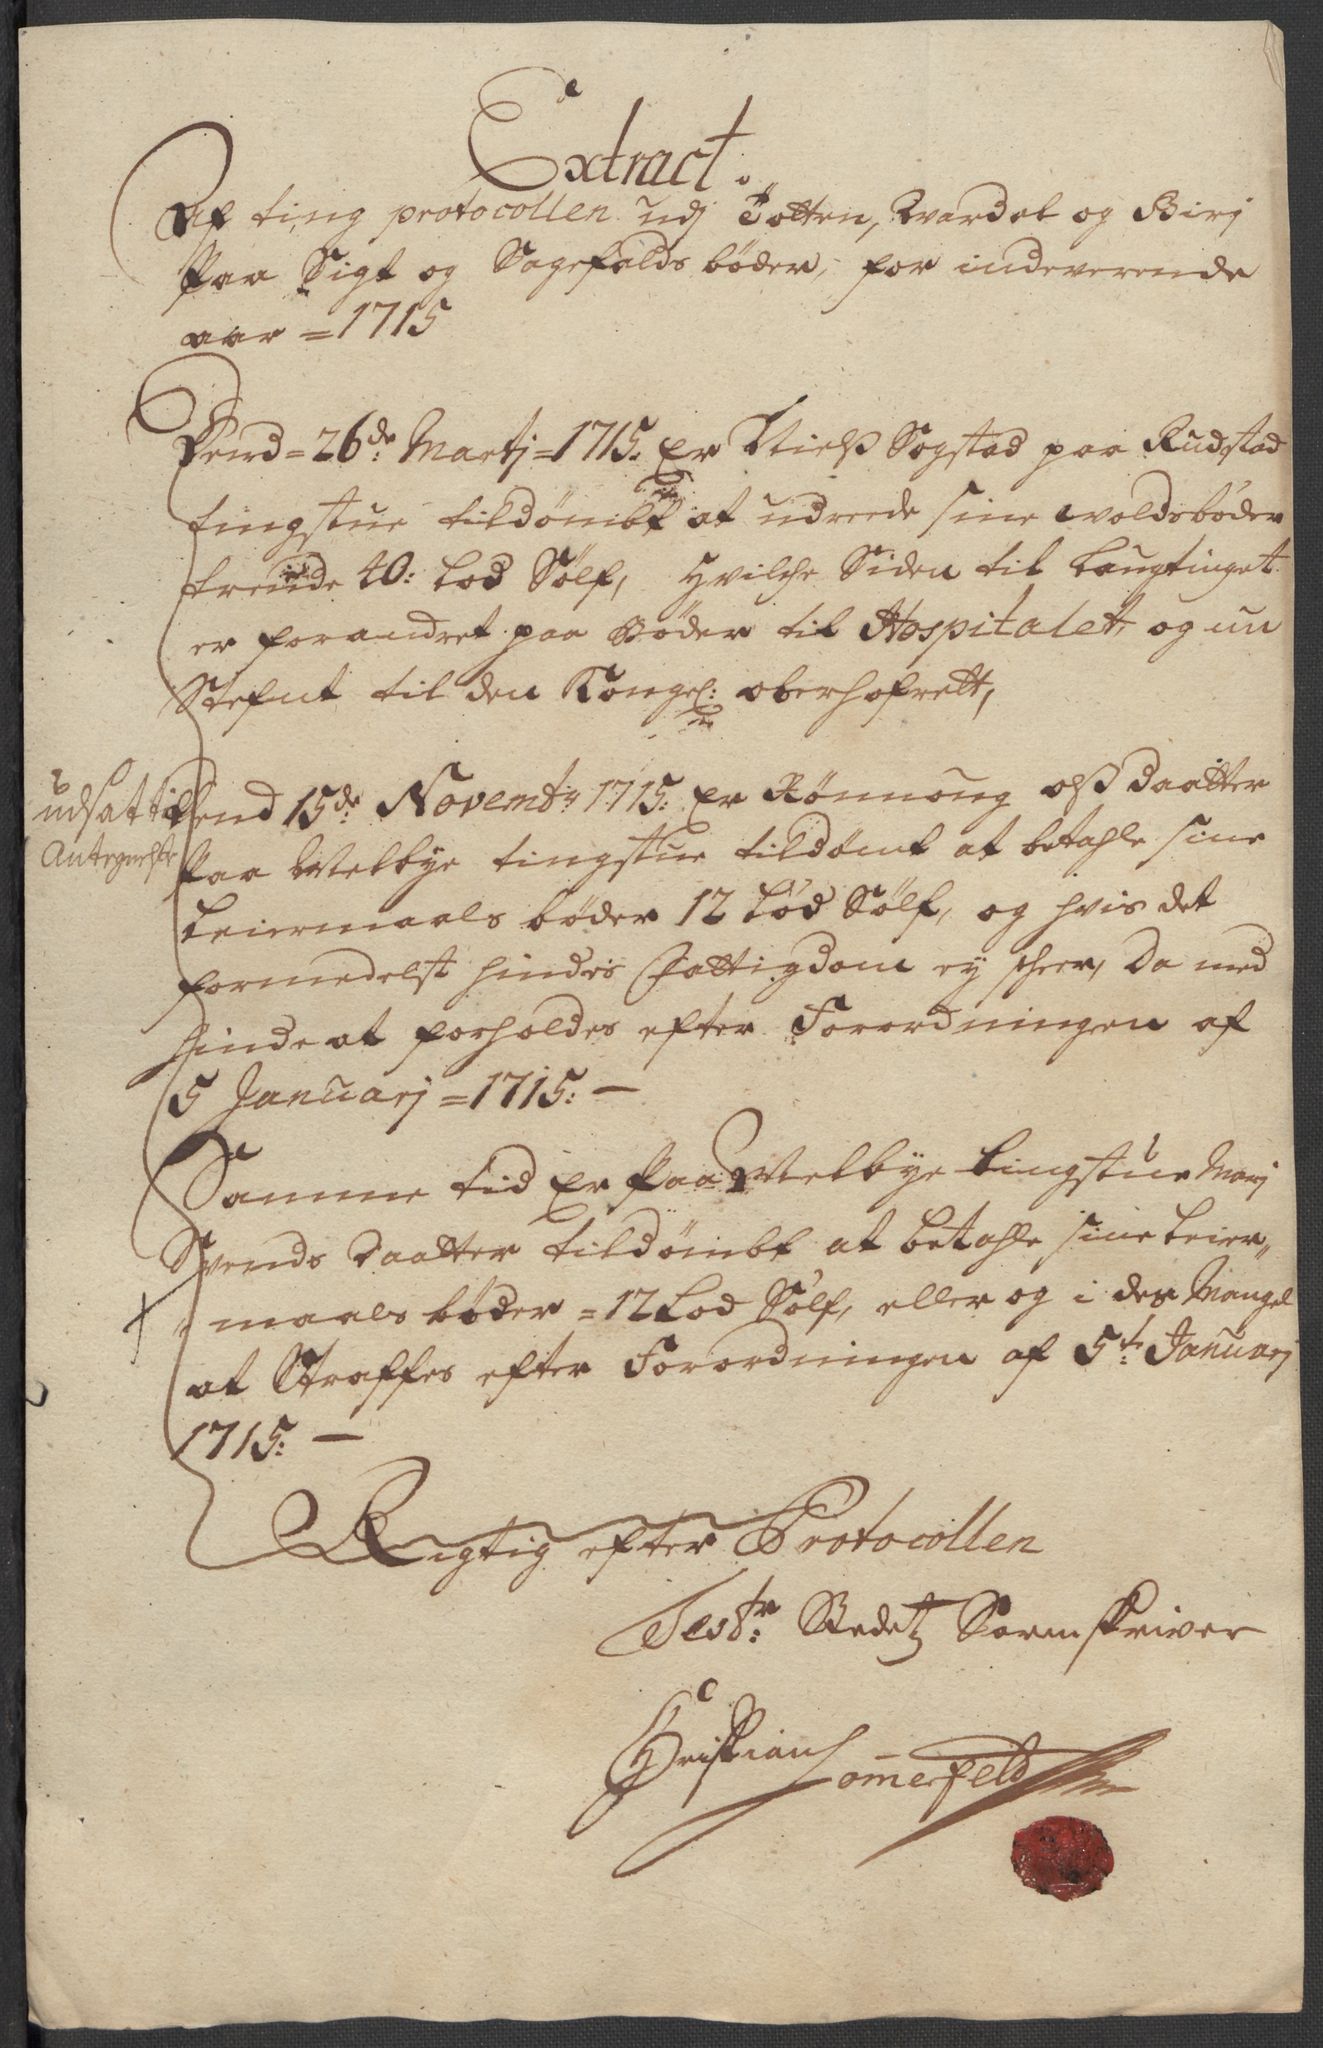 Extract.
Af ting protocollen udj Totten, Wardal og Birj
Paa Sigt og Sagefalds bøder, for indeverende
aar = 1715
Dend = 26de: Martj = 1715. Er Niels Sogstad paa Rudstad
tingstue tildømbt at udreede sine voldsbøder
trende 40: Lod Sølf, hvilche Siden til Laugtinget
er forandret paa Bøder til Hospitalet, og nu
Stefnt til den Kongel: oberhofrett,
udsat til
Antegnelse
Dend 15de Novembr 1715. Er Rønnoug olss daatter
Paa Melbye tingstue tildømt at betahle sine
Leiermaals bøder 12 Lod Sølf, og hvis det
formedelst hindes Fattigdom ey scheer, Da med
hinde at forholdes efter Forordningen af
5 Januarj = 1715: —
Samme tid Er Paa Melbye tingstue Marj
Svends Daatter tildømbt at betahle sine Leier„
„maals bøder = 12 Lod Sølf, eller og i des Mangel
at Straffes efter Forordningen af 5t: Januarj
1715: —
Rigtig efter Protocollen
Test: Stedetz Sorenskriver
Christian Somerfeld